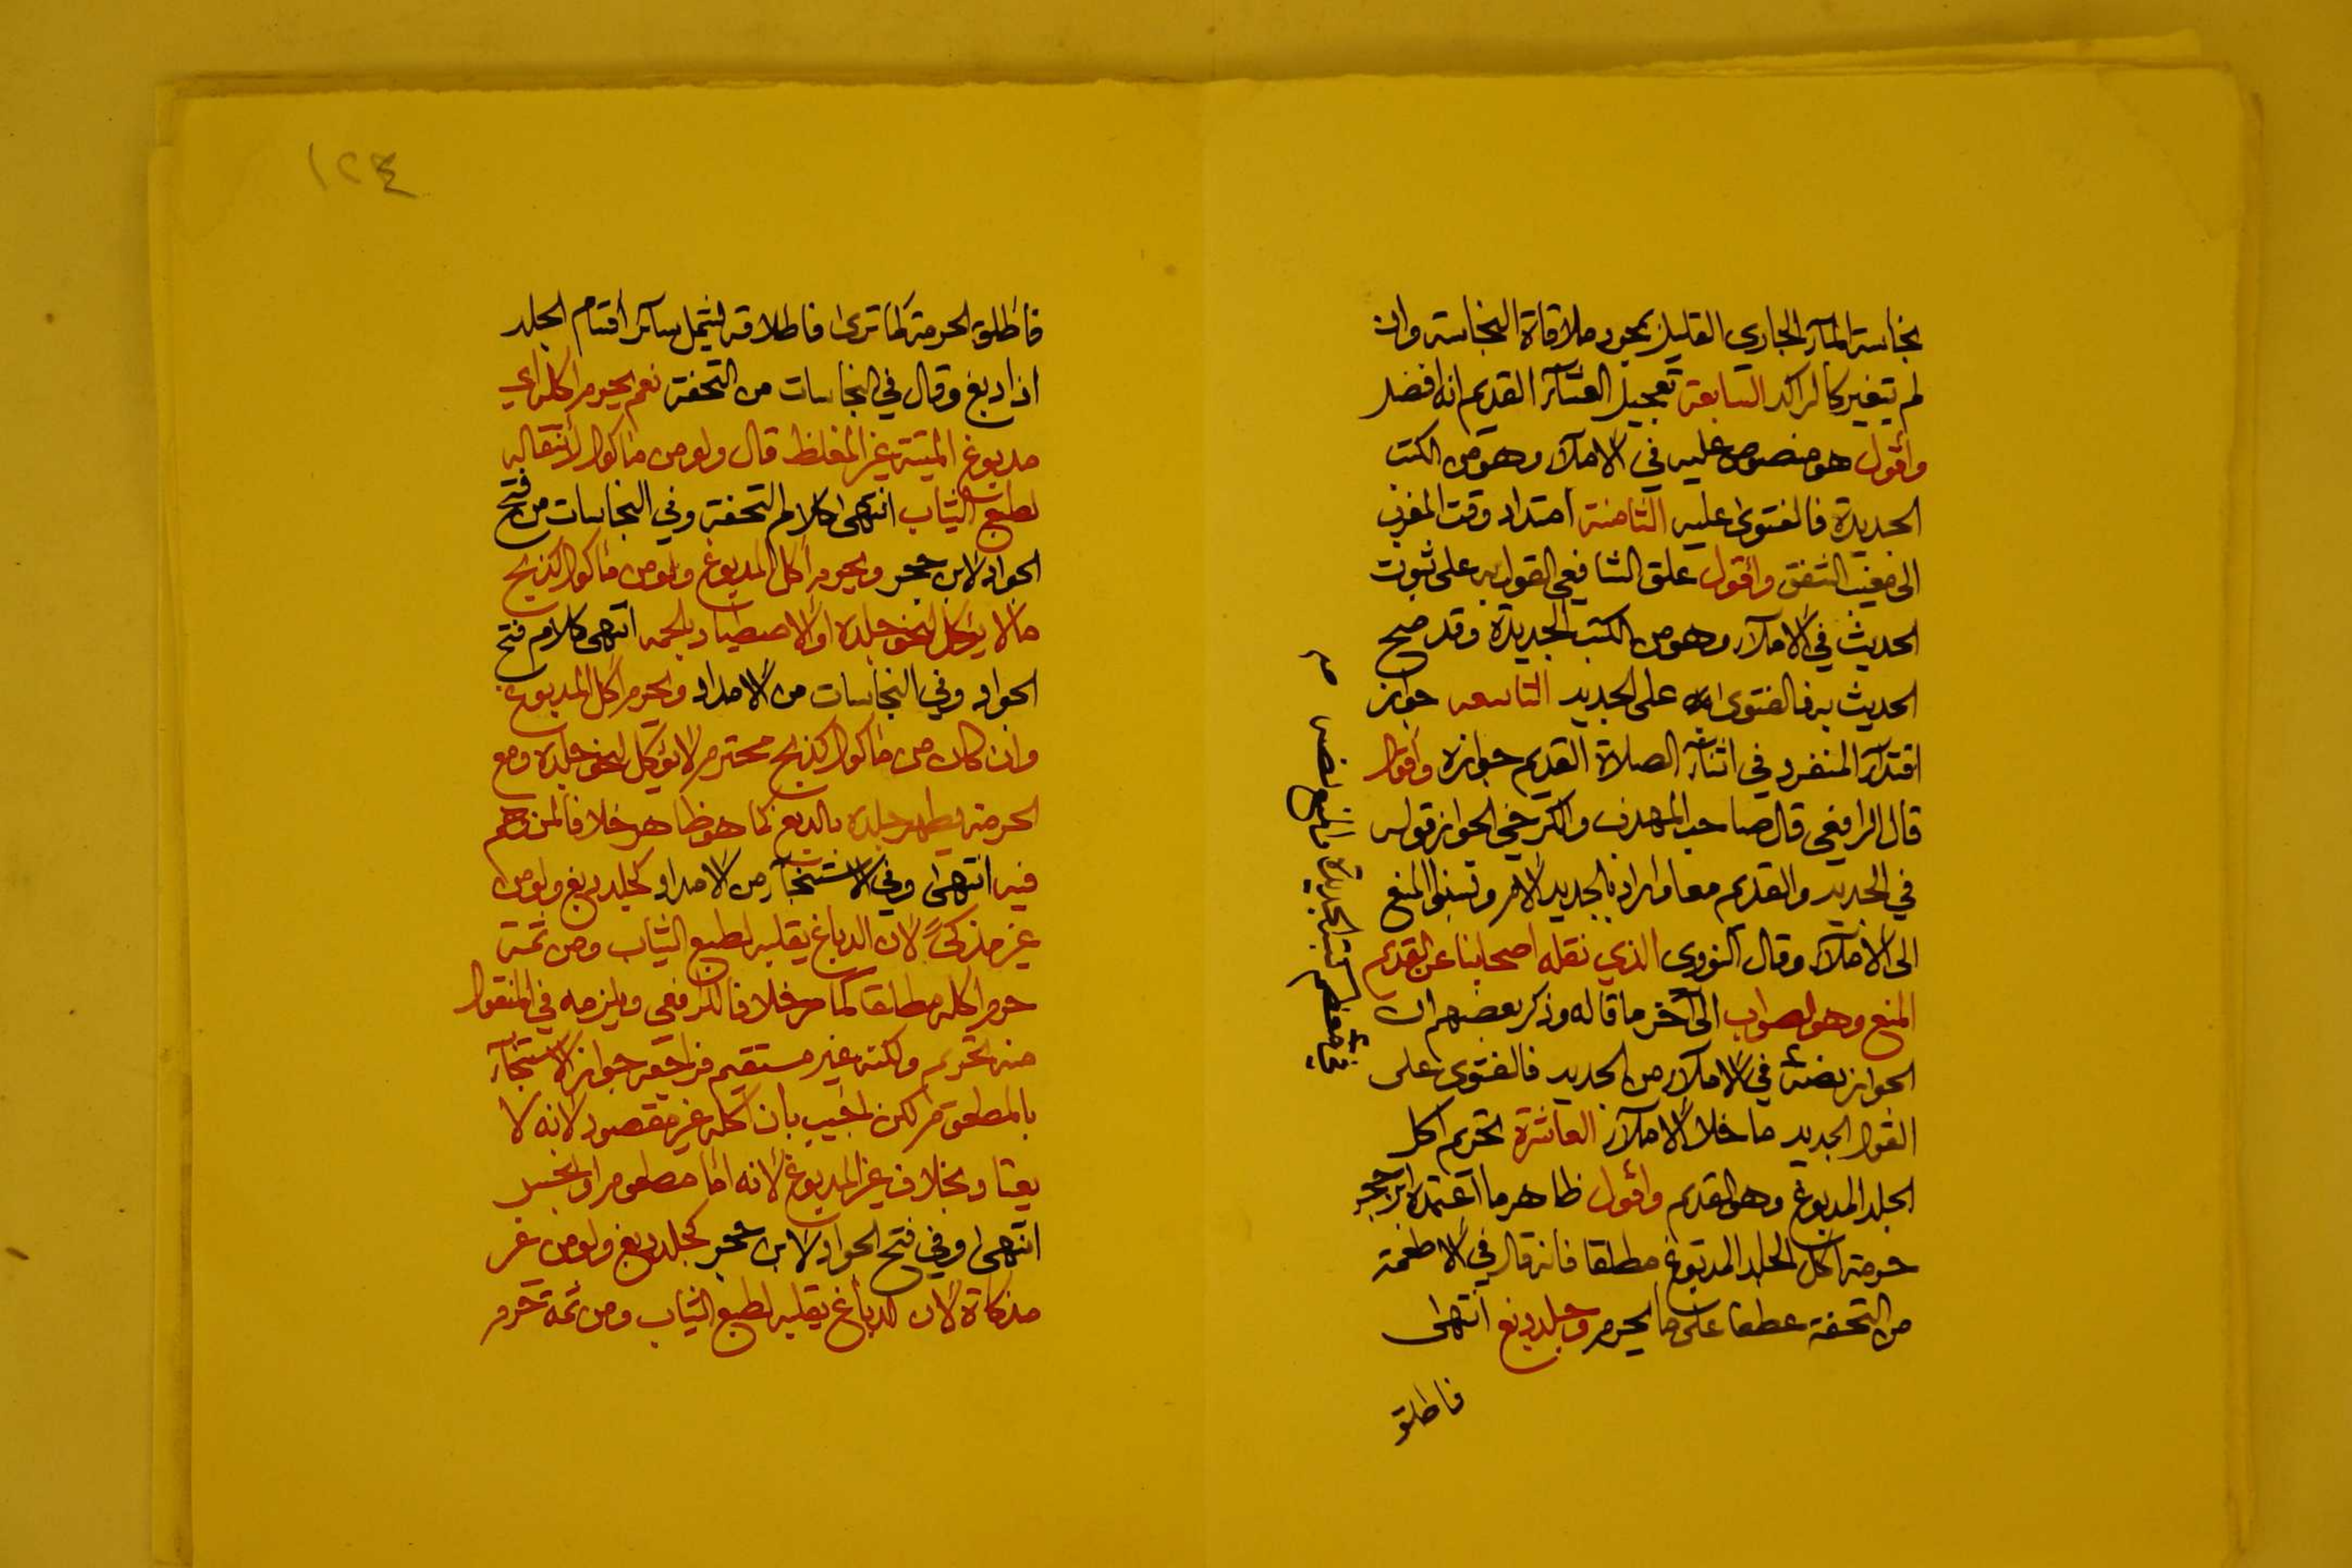 نجاسة المآء الجاري القليل بمجرد ملاقاة النجاسة وان
لم يتغير كالراكد السابعة تعجيل العشآء القديم انه افضل
وأقول هو منصوص عليه في الاملآء وهو من الكتب
الجديدة فالفتوى عليه الثامنة امتداد وقت المغرب
الى مغيب الشفق وأقول علق الشافعي القول به على ثبوت
الحديث في الاملآء وهو من الكتب الجديدة وقد صح
الحديث به فالفتوى على الجديد التاسعه جواز
اقتدآء المنفرد في اثنآء الصلاة القديم جوازه وأقول
قال الرافعي قال صاحب المهذب والكرخي الجواز قوله
في الجديد والقديم معا واراد بالجديد الام ونسبوا المنع
الى الاملآء وقال النووي الذي نقله اصحابنا عن القديم
المنع وهو الصواب الى آخر ما قاله وذكر بعضهم ان
الجواز نصه في الاملآء من الجديد فالفتوى على
القول الجديد ما خلا الاملآء العاشرة تحريم اكل
الجلد المدبوغ وهو القديم وأقول ظاهر ما اعتمده ابن حجر
حرمة اكل الجلد المدبوغ مطلقا فانه قال في الاطعمة
من التحفة عطفا على ما يحرم وجلد دبغ انتهى
فاطلق
فاطلق الحرمة كما ترى فاطلاقه يشمل سآئر أقسام الجلد
اذا دبغ وقال في النجاسات من التحفة نعم يحرم اكله اي
مدبوغ الميتة غير المغلظ قال ولو من مأكول لانتقاله
لطبع الثياب انتهى كلام التحفة وفي النجاسات من فتح
الجواد لابن حجر ويحرم أكل المدبوغ ولو من مأكول كذبح
ما لا يؤكل لنحو جلده أو الاصطياد بلحمه انتهى كلام فتح
الجواد وفي النجاسات من الامداد ويحرم اكل المدبوغ
وان كان من مأكول كذبح محترم لا يؤكل لنحو جلده ومع
الحرمة يطهر جلده بالدبغ كما هو ظاهر خلافا لمن وهم
فيه انتهى وفي الاستنجآء من الامداد كجلد دبغ ولو من
غير مذكى لان الدباغ يقلبه لطبع الثياب ومن ثمة
حرم اكله مطلقا كما مر خلافا للرافعي ويلزمه في المنقول
منه تحريم ولكنه غير مستقيم جواز الاستنجآء
بالمطعوم لكن اجيب بأن أكله غير مقصود لانه لا
يعتاد بخلاف غير المدبوغ لانه امّا مطعوم او نجس
انتهى وفي فتح الجواد لابن حجر كجلد دبغ ولو من غير
مذكاة لان الدباغ يقلبه لطبع الثياب ومن ثمة حرم
١٢٤